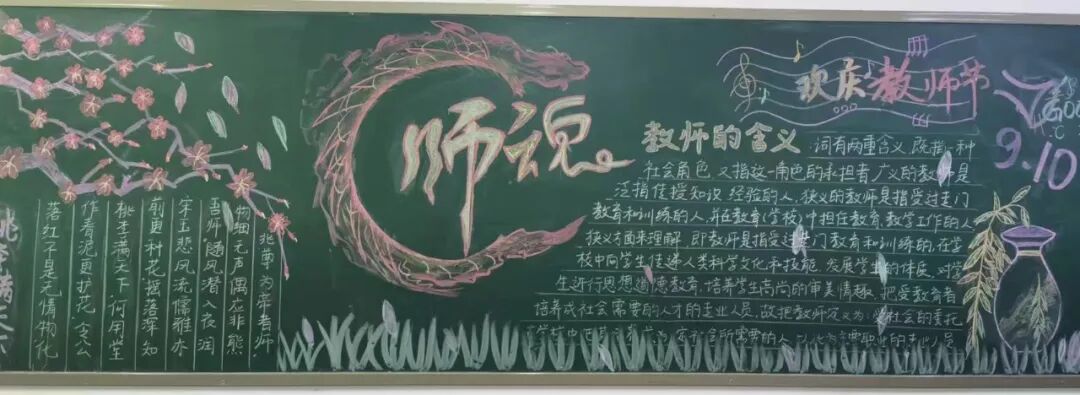 桃李满天下
落红不是无情物化
作春泥更护花令公
桃李满天下何用堂
前更种花摇落深知
宋玉悲风流儒雅亦
吾师随风潜入夜润
物细无声偶应非熊
兆尊为帝者师
师魂
欢庆教师节
9.10
教师的含义
词有两重含义既指一种
社会角色又指这一角色的承担者广义的教师是
泛指传授知识经验的人,狭义的教师是指受过专门
教育和训练的人,并在教育(学校)中担任教育、教学工作的人
狭义方面来理解,即教师是指受过专门教育和训练的,在学
校中向学生传递人类科学文化和技能,发展学生的体质,对学
生进行思想道德教育,培养学生高尚的审美情趣,把受教育者
培养成社会需要的人才的专业人员,故把教师定义为:受社会的委托
社会所需要的人